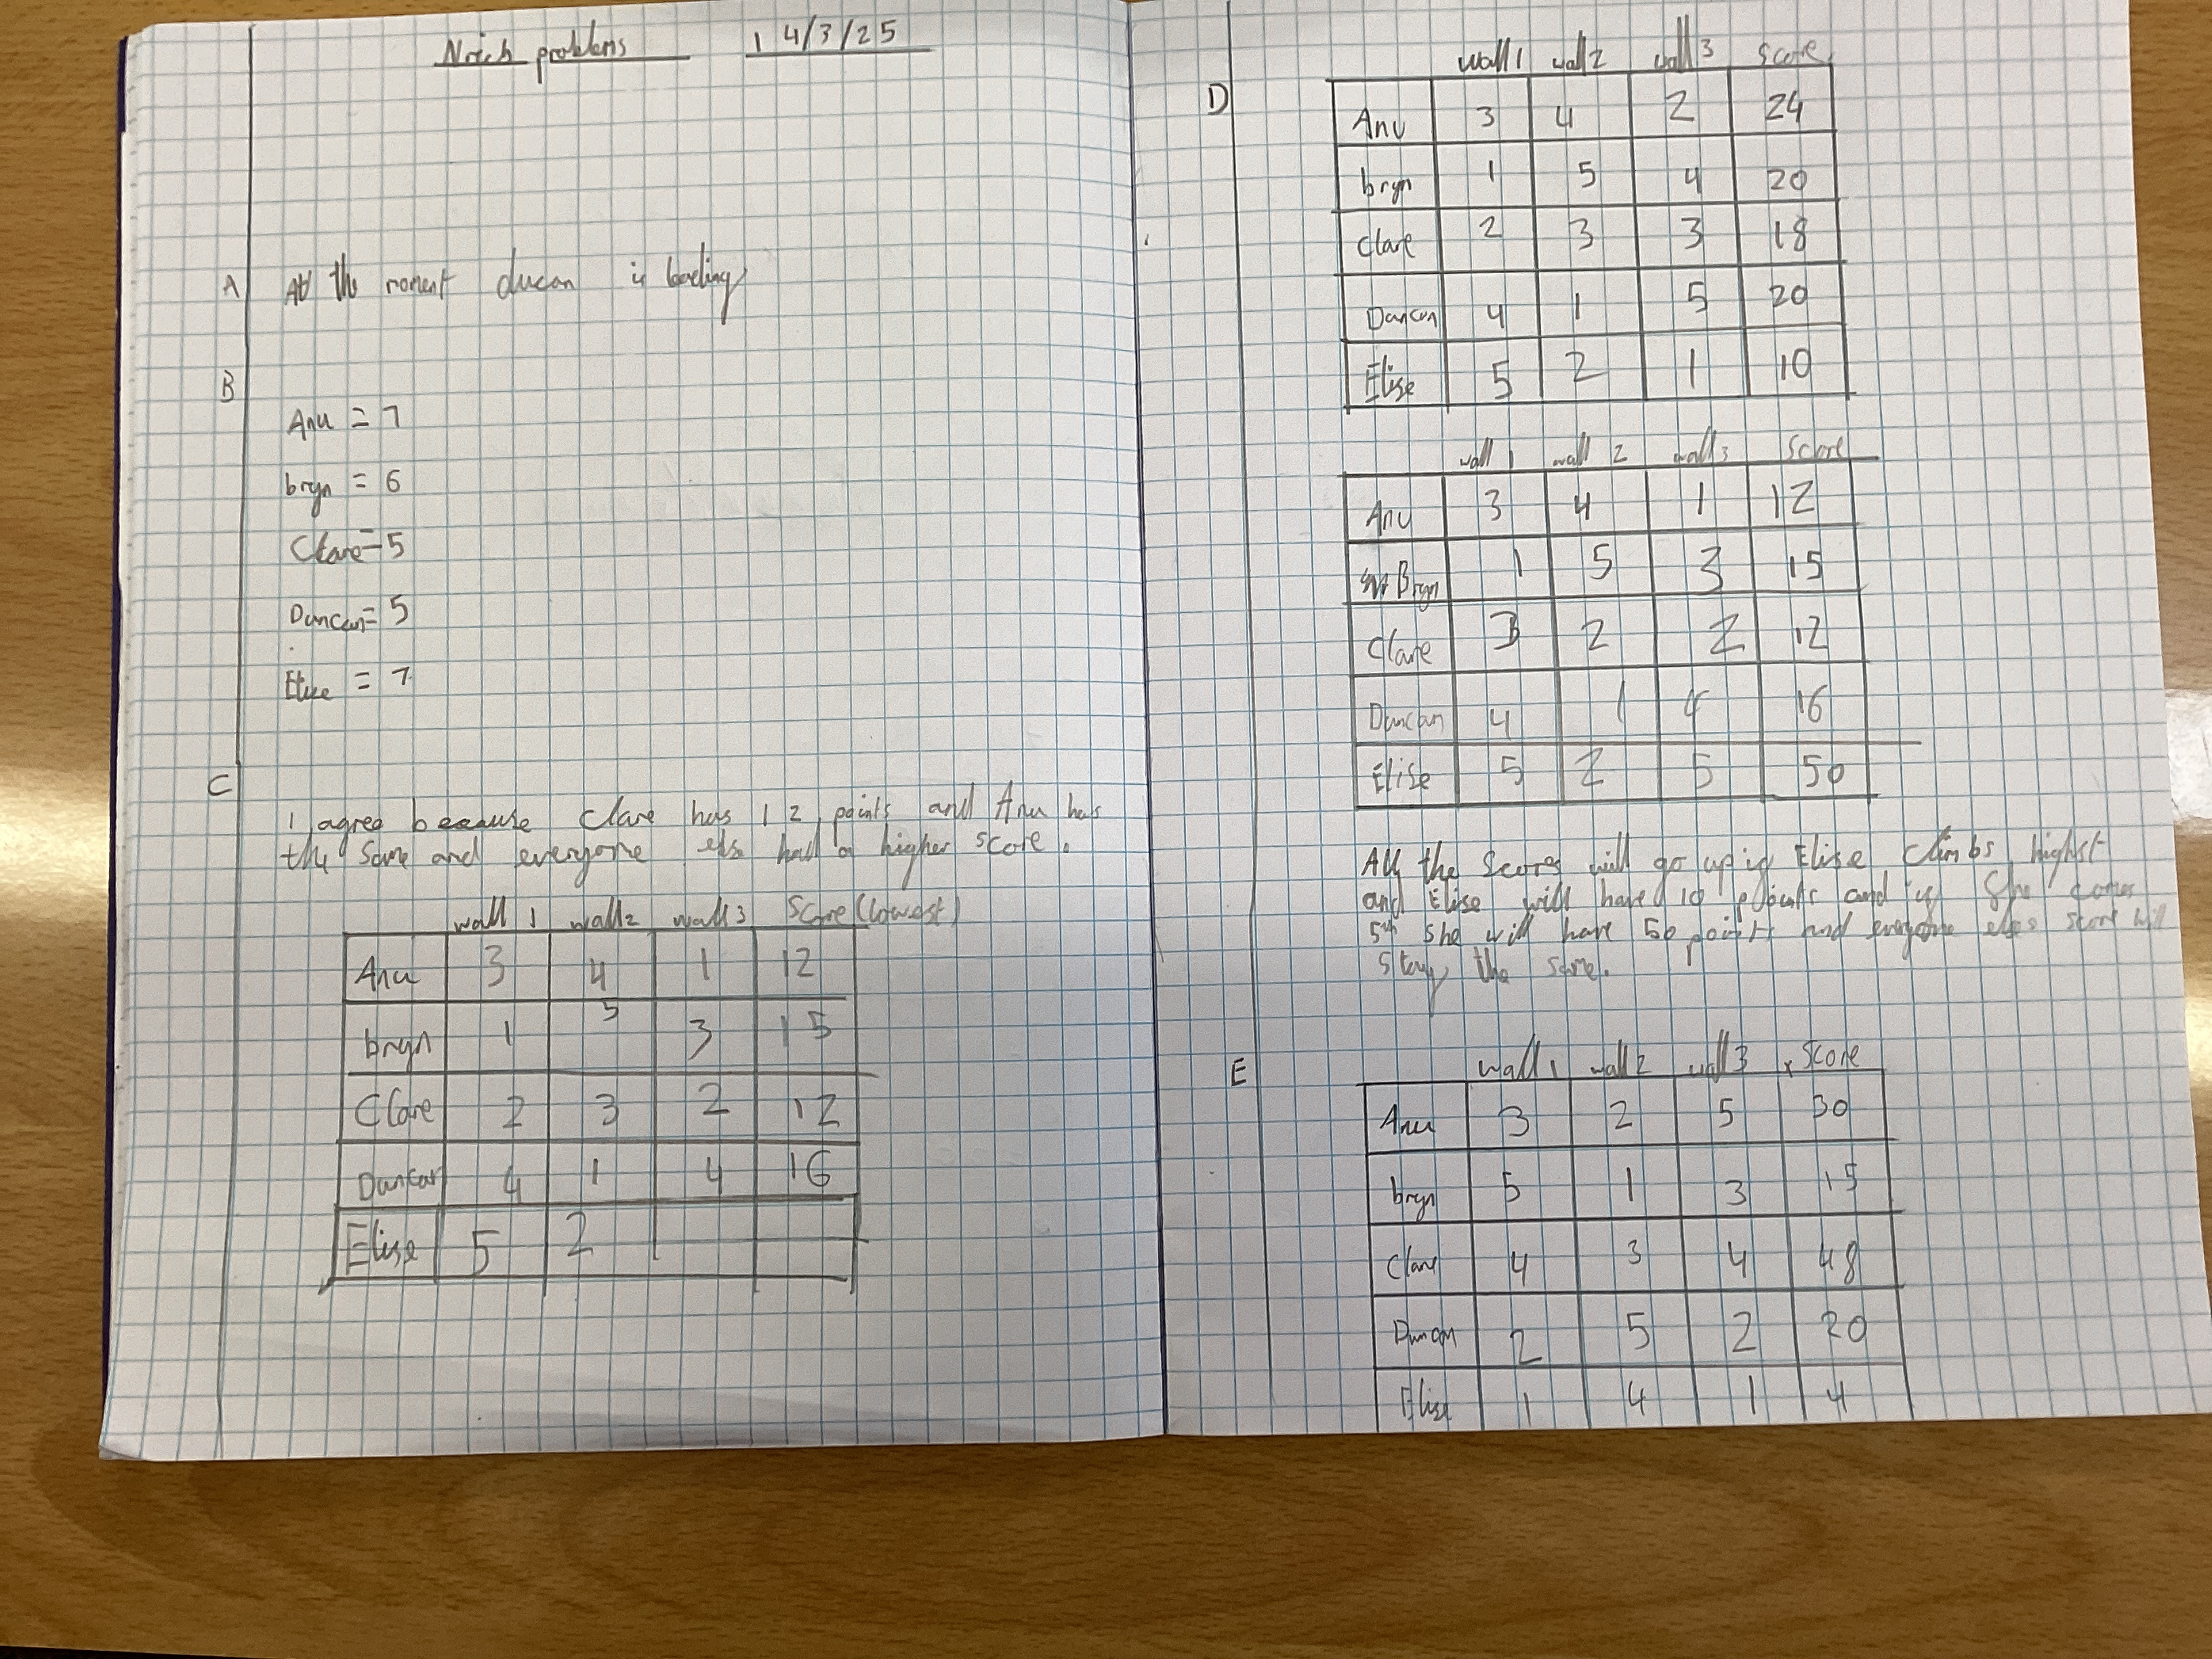 Nrich problems 14/3/25
A At the moment ducan is leading
B
Anu = 7
bryn = 6
Clare = 5
Duncan = 5
Elise = 7
C
I agree because Clare has 12 points and Anu has
the same and everyone else had a higher score.
wall 1 wall 2 wall 3 Score (lowest)
Anu 3 4 1 12
bryn 1 5 3 15
Clare 2 3 2 12
Duncan 4 1 4 16
Elise 5 2
D
wall 1 wall 2 wall 3 Score
Anu 3 4 2 24
bryn 1 5 4 20
Clare 2 3 3 18
Duncan 4 1 5 20
Elise 5 2 1 10
wall 1 wall 2 wall 3 Score
Anu 3 4 1 12
Bryn 1 5 3 15
Clare 3 2 2 12
Duncan 4 1 4 16
Elise 5 2 5 50
All the scores will go up if Elise climbs highest
and Elise will have 10 points and if she comes
5th she will have 50 points and everyone elses score will
stay the same.
E
wall 1 wall 2 wall 3 Score
Anu 3 2 5 30
bryn 5 1 3 15
Clare 4 3 4 48
Duncan 2 5 2 20
Elise 1 4 1 4